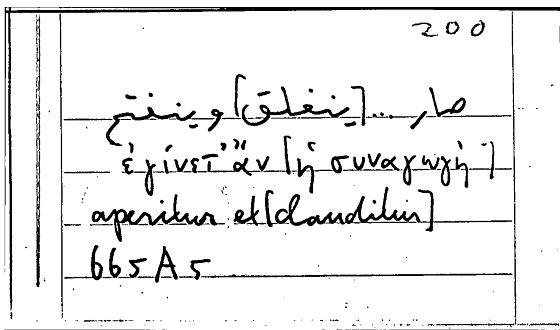 200
صار ... [ينغلق] وينفتح
ἐγίνετ' ἂν [ἡ συναγωγή]
aperitur et [clauditur]
665 A 5